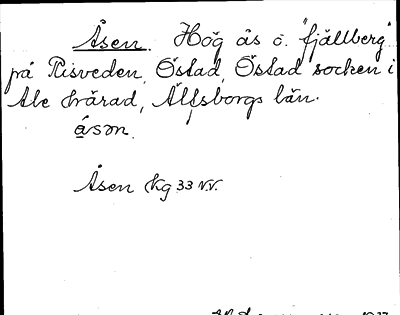 Åsen. Hög ås o. "fjällberg"
på Risveden, Östad, Östad socken i
Ale härad, Älfsborgs län.
åsən.
Åsen Kg 33 N.V.